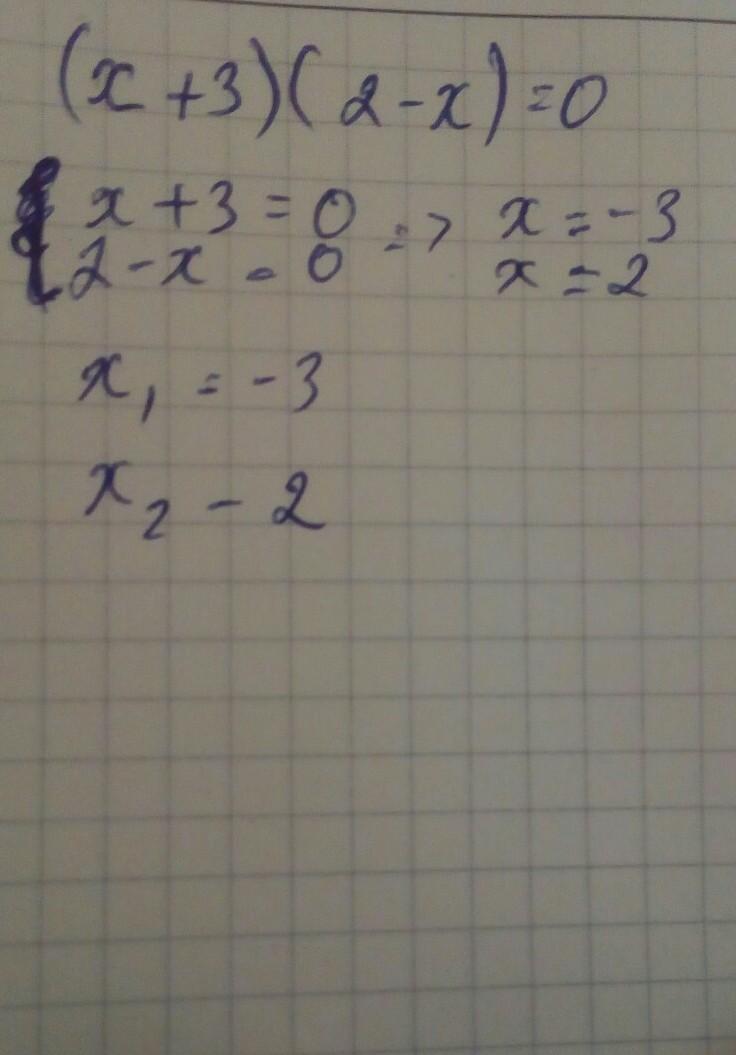 (x+3)(2-x)=0
x+3=0 => x=-3
2-x=0 x=2
x₁=-3
x₂-2